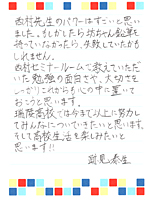 西村先生のパワーはすごいと思い
ました。もしかしたら坊ちゃん鉛筆を
持っていなかったら、失敗していたかも
しれません。
西村セミナールームで教えていただ
いた勉強の面白さや、大切さを
しっかりこれからも心の中に置いて
おこうと思います。
瑞陵高校では今まで以上に努力し
てみんなについていきたいと思います。
そして高校生活を楽しみたいと
思います!!